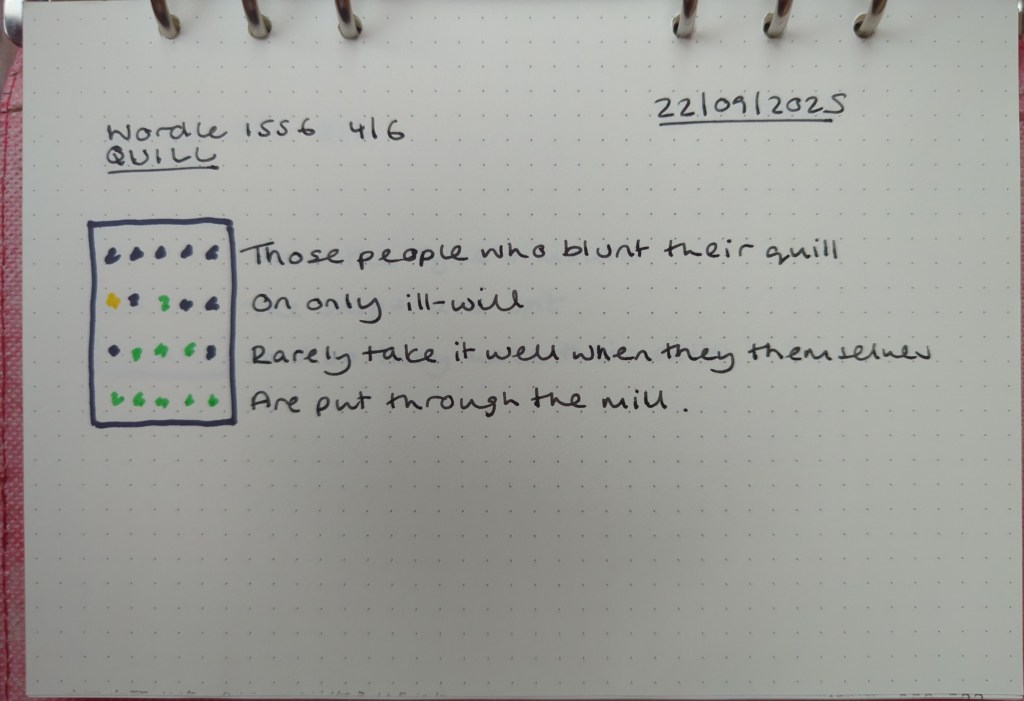 22/09/2025
Wordle 1556 4/6
QUILL
Those people who blunt their quill
On only ill-will
Rarely take it well when they themselves
Are put through the mill.